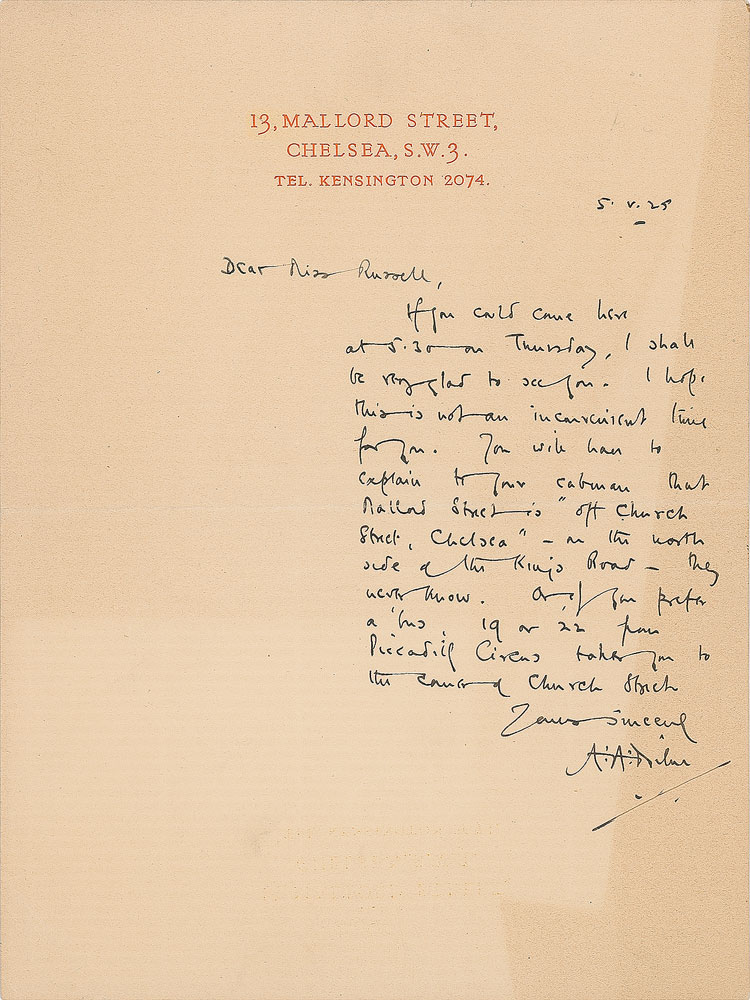 13, MALLORD STREET,
CHELSEA, S.W.3.
TEL. KENSINGTON 2074.
5. V. 25
Dear Miss Russell,
If you could come here
at 5.30 on Thursday, I shall
be very glad to see you. I hope
this is not an inconvenient time
for you. You will have to
explain to your cabman that
Mallord Street is "off Church
Street, Chelsea" – on the north
side of the King's Road – they
never know. Or, if you prefer
a 'bus, 19 or 22 from
Piccadilly Circus takes you to
the corner of Church Street
Yours sincerely
A. A. Milne